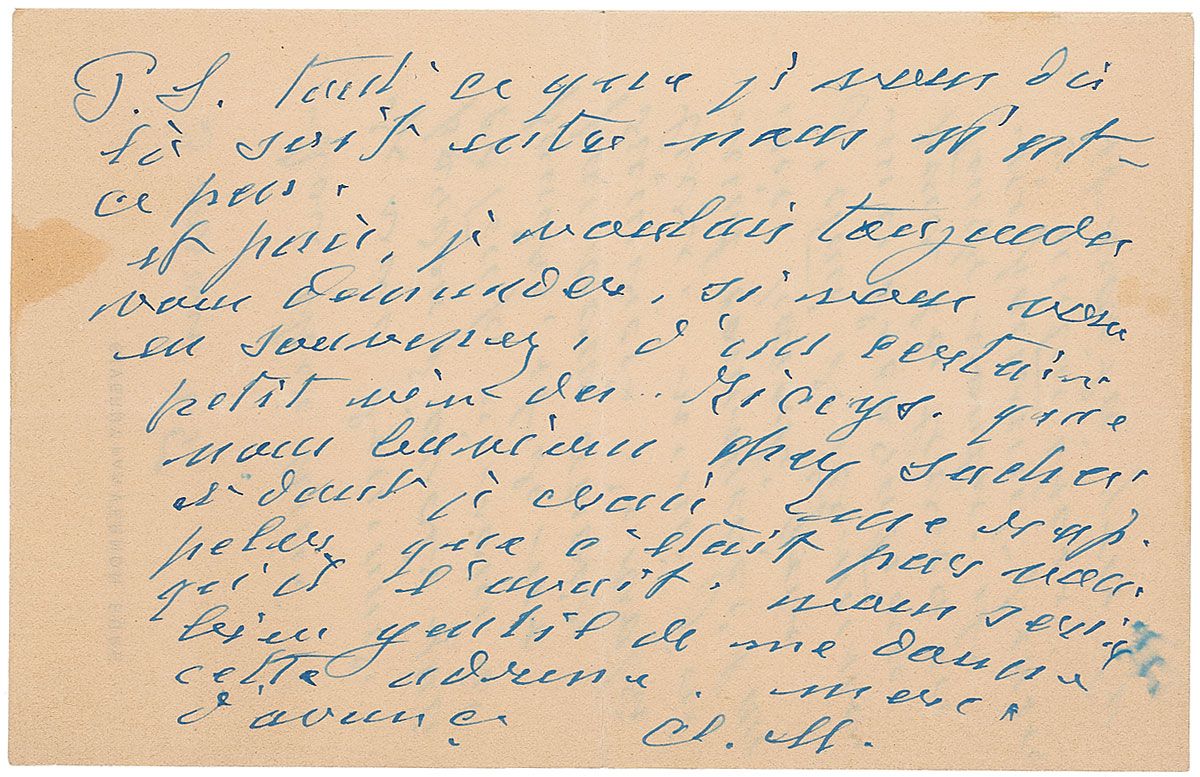 P.S. tout ce que je vous dis
là soit entre nous n'est-
ce pas.
et puis, je voulais toujours
vous demander, si vous vous
en souvenez, d'un certain
petit vin des Riceys. que
nous buvions chez Sacha
et dont je crois me rap.
peler, que c'était par vous
qu'il l'avait. vous seriez
bien gentil de me donner
cette adresse. merci
d'avance
Cl. M.